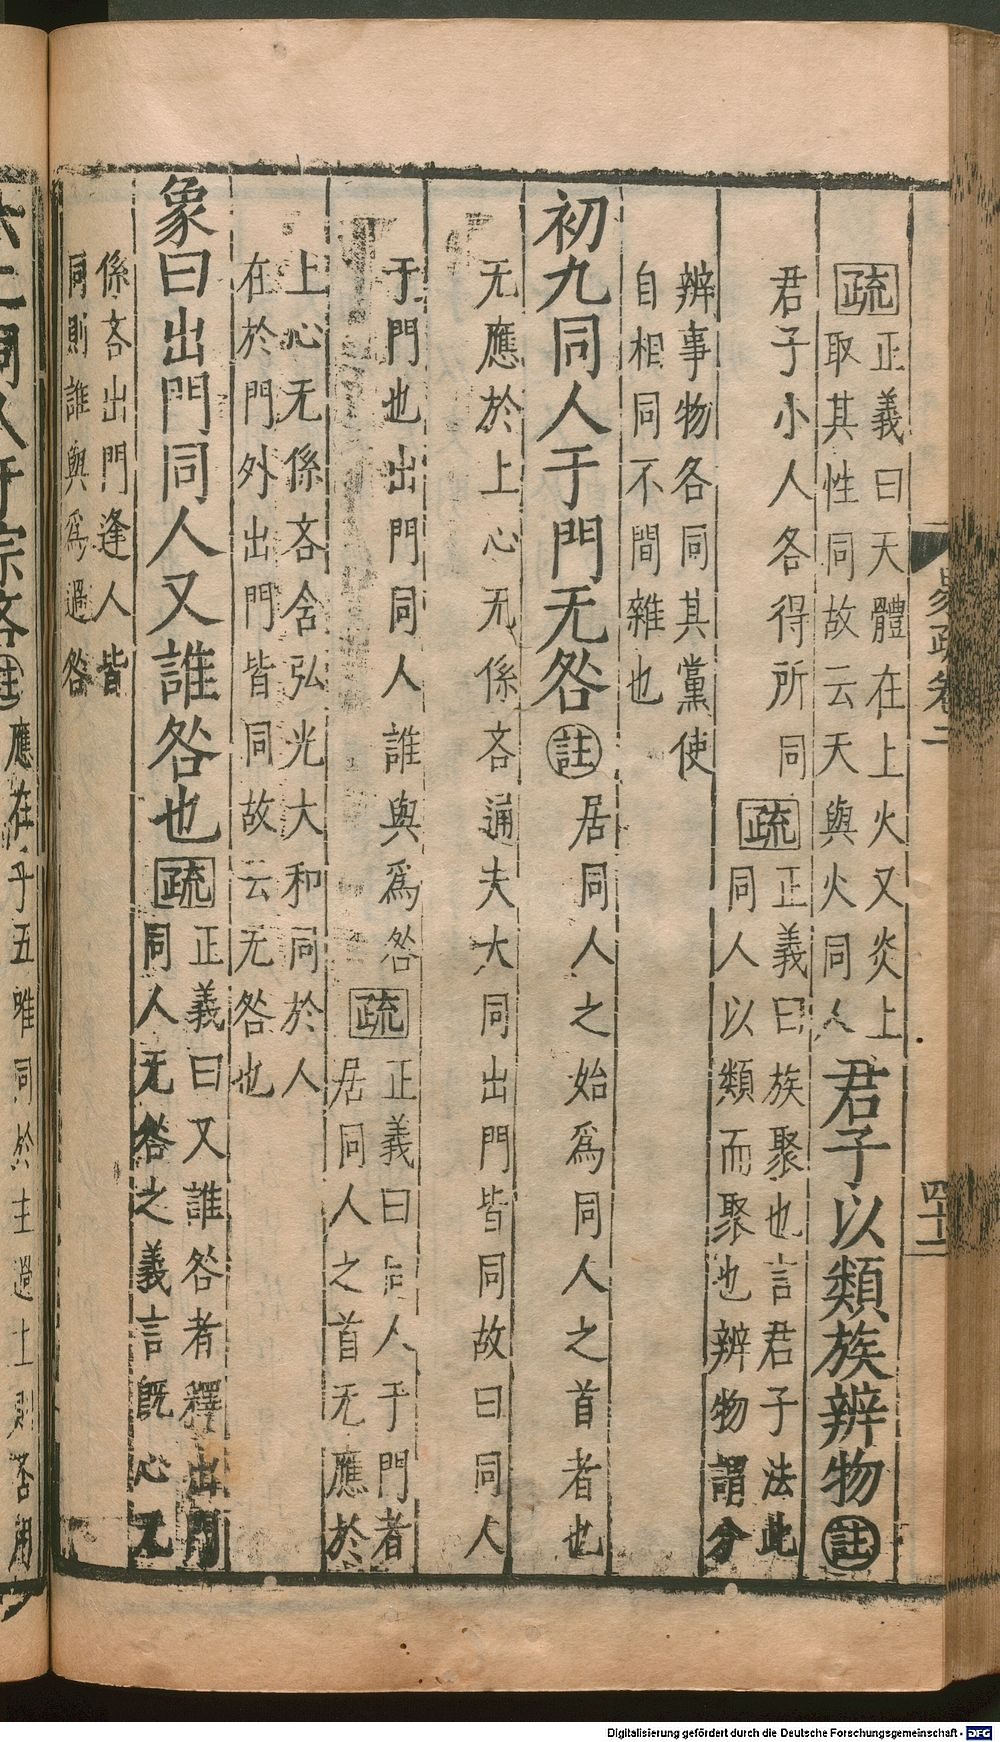 疏 正義曰天體在上火又炎上
取其性同故云天與火同人 君子以類族辨物 註
君子小人各得所同 疏 正義曰族聚也言君子法此
同人以類而聚也辨物謂分
辨事物各同其黨使
自相同不間雜也
初九同人于門无咎 註 居同人之始為同人之首者也
无應於上心无係吝通夫大同出門皆同故曰同人
于門也出門同人誰與為咎 疏 正義曰同人于門者
居同人之首无應於
上心无係吝含弘光大和同於人
在於門外出門皆同故云无咎也
象曰出門同人又誰咎也 疏 正義曰又誰咎者釋出門
同人无咎之義言既心无
係吝出門逢人皆
同則誰與為過咎
易疏卷二
四十二
六二同人于宗吝 註 應在乎五唯同於主過主則否用
Digitalisierung gefördert durch die Deutsche Forschungsgemeinschaft - DFG